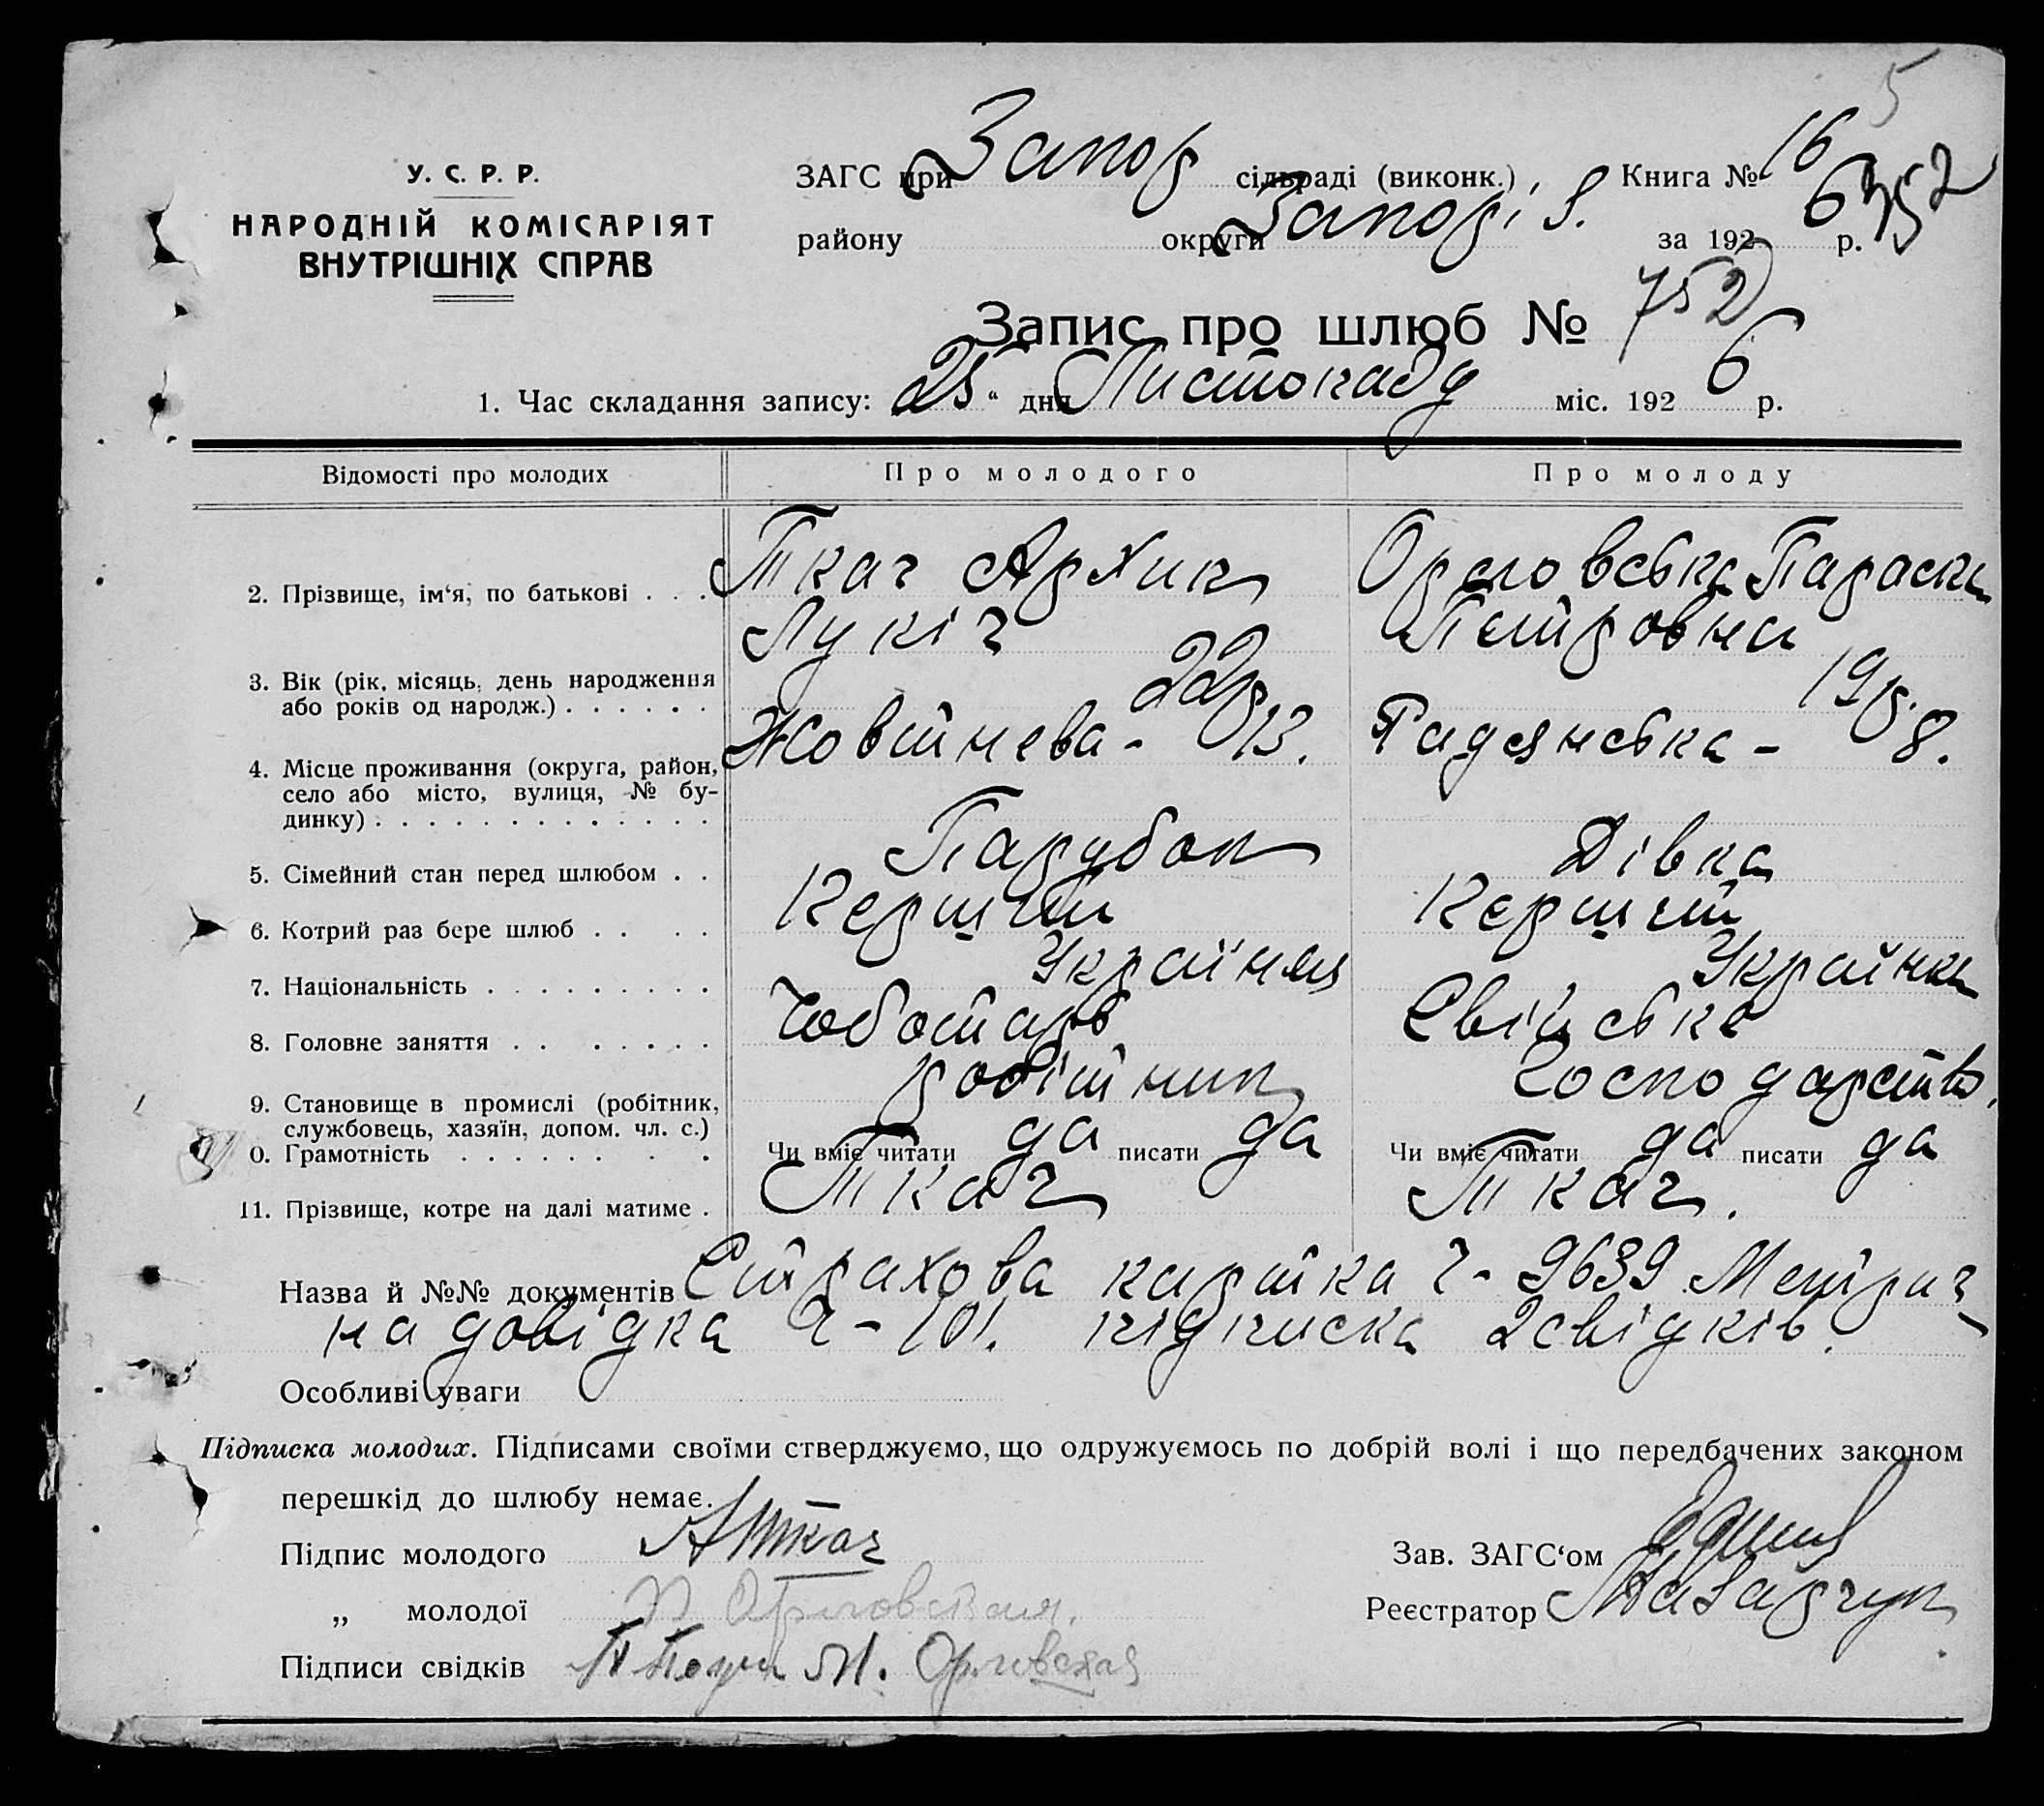 5
У. С. Р. Р.
НАРОДНІЙ КОМІСАРІЯТ
ВНУТРІШНІХ СПРАВ
ЗАГС при Запор сільраді (виконк.) Книга № 16
району округи Запоріз. за 1926 р. 352
Запис про шлюб № 752
1. Час складання запису: 25 “ дня Листопаду міс. 1926 р.
Відомості про молодих Про молодого Про молоду
2. Прізвище, ім‘я, по батькові . . . Ткач Архип Лукіч Орловська Параска Петровна
3. Вік (рік, місяць, день народження
або років од народж.) . . . . . . 22р 19р.
4. Місце проживання (округа, район,
село або місто, вулиця, № бу-
динку) . . . . . . . . . . . . . Жовтнева - 13. Радянська - 8.
5. Сімейний стан перед шлюбом . . Парубок Дівка
6. Котрий раз бере шлюб . . . . Перший Перший
7. Національність . . . . . . . . . Українец Українка
8. Головне заняття . . . . . . . Чоботарь Свійське
9. Становище в промислі (робітник,
службовець, хазяїн, допом. чл. с.) робітник господарство.
0. Грамотність . . . . . . . . Чи вміє читати да писати да Чи вміє читати да писати да
11. Прізвище, котре на далі матиме . Ткач Ткач.
Назва й №№ документів Страхова картка ч- 9639 Метрич
на довідка ч- 101. підписка 2 свідків.
Особливі уваги
Підписка молодих. Підписами своїми стверджуємо, що одружуємось по добрій волі і що передбачених законом
перешкід до шлюбу немає.
Підпис молодого АТкач Зав. ЗАГС‘ом
„ молодої П Орловская. Реєстратор
Підписи свідків М. Орловская